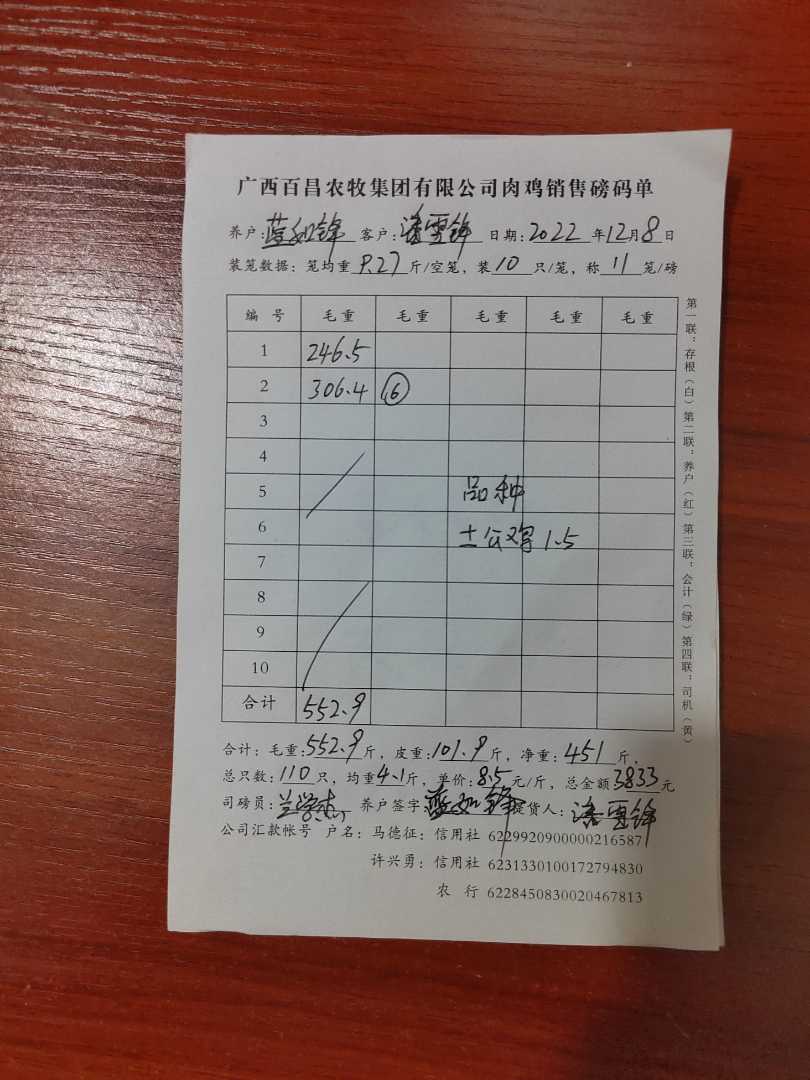 广西百昌农牧集团有限公司肉鸡销售磅码单
养户:蓝如锋 客户:潘雪锋 日期:2022年12月8日
装笼数据:笼均重9.27斤/空笼,装10只/笼,称11笼/磅
编号 毛重 毛重 毛重 毛重 毛重
1 246.5
2 306.4 (6)
3
4
5 品种
6 土公鸡1.5
7
8
9
10
合计 552.9
合计:毛重:552.9斤,皮重:101.9斤,净重:451斤,
总只数:110只,均重4.1斤,单价:8.5元/斤,总金额3833元
司磅员: 养户签字:蓝如锋 提货人:潘雪锋
公司汇款帐号 户名:马德征:信用社 6229920900000216587
许兴勇:信用社 6231330100172794830
农 行 6228450830020467813
第一联:存根(白)第二联:养户(红)第三联:会计(绿)第四联:司机(黄)